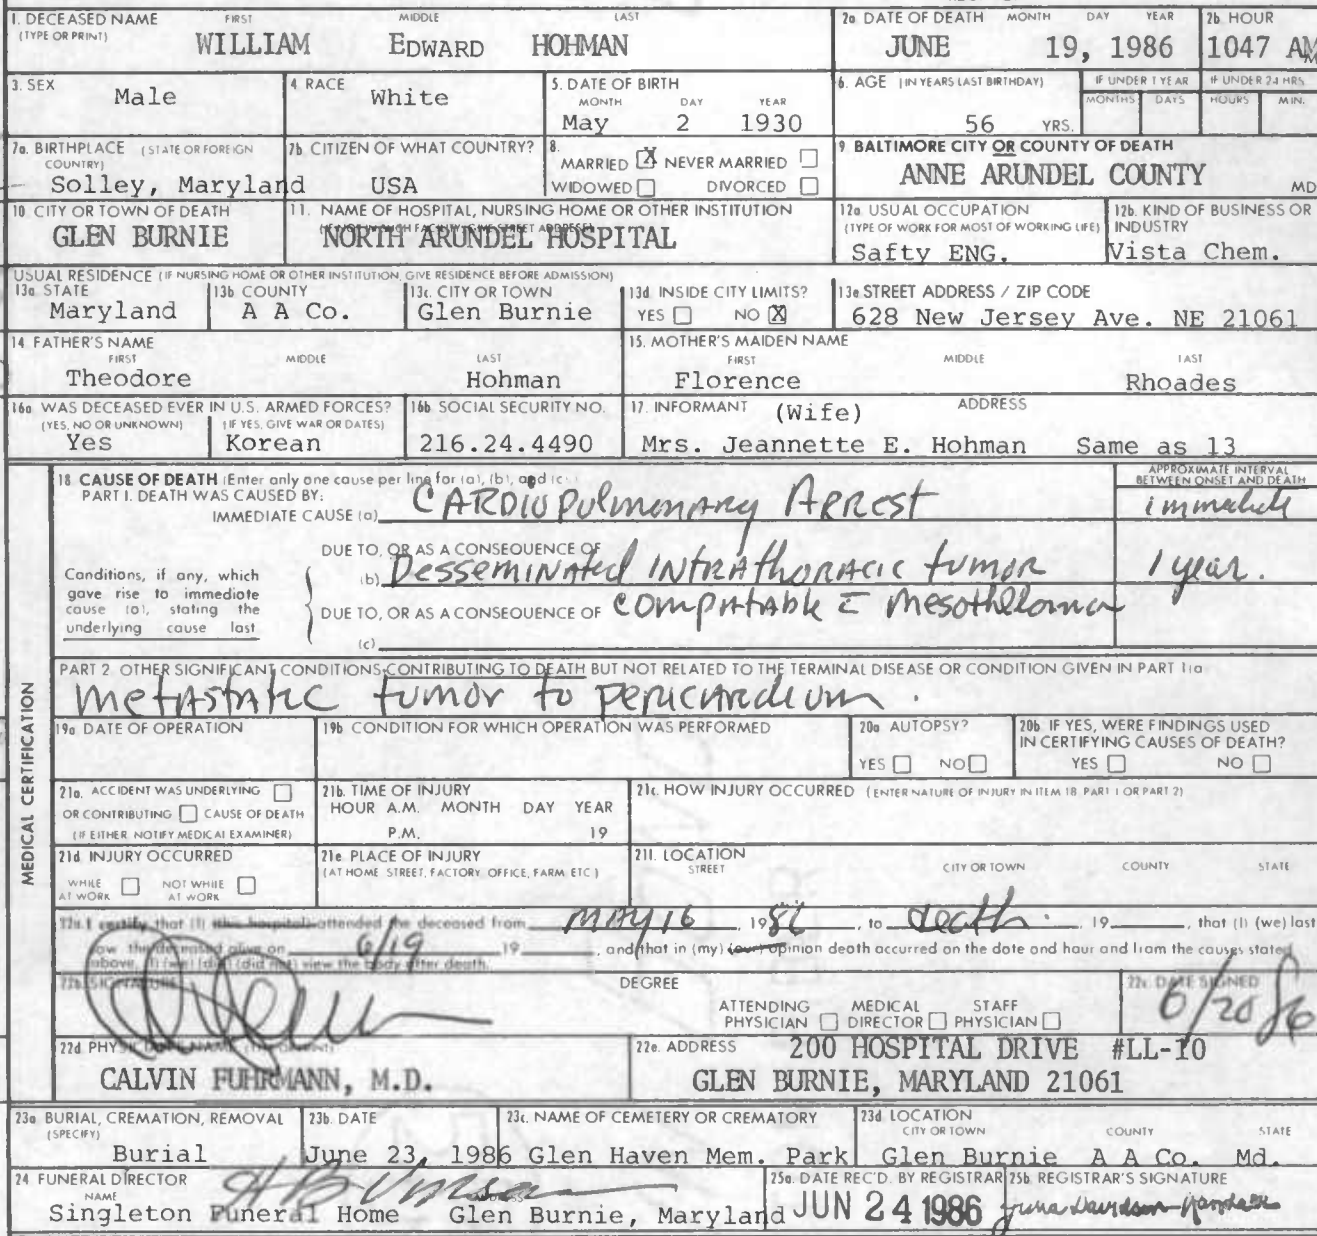 1. DECEASED NAME FIRST MIDDLE LAST
(TYPE OR PRINT)
WILLIAM EDWARD HOHMAN
2a DATE OF DEATH MONTH DAY YEAR
JUNE 19, 1986
2b. HOUR
1047 AM
3. SEX
Male
4. RACE
White
5. DATE OF BIRTH
MONTH DAY YEAR
May 2 1930
6. AGE (IN YEARS LAST BIRTHDAY)
56 YRS.
IF UNDER 1 YEAR
MONTHS DAYS
IF UNDER 24 HRS.
HOURS MIN.
7a. BIRTHPLACE (STATE OR FOREIGN
COUNTRY)
Solley, Maryland
7b. CITIZEN OF WHAT COUNTRY?
USA
8.
MARRIED X NEVER MARRIED
WIDOWED DIVORCED
9. BALTIMORE CITY OR COUNTY OF DEATH
ANNE ARUNDEL COUNTY
MD
10. CITY OR TOWN OF DEATH
GLEN BURNIE
11. NAME OF HOSPITAL, NURSING HOME OR OTHER INSTITUTION
(IF NOT IN SUCH FACILITY, GIVE STREET ADDRESS)
NORTH ARUNDEL HOSPITAL
12a. USUAL OCCUPATION
(TYPE OF WORK FOR MOST OF WORKING LIFE)
Safty ENG.
12b. KIND OF BUSINESS OR
INDUSTRY
Vista Chem.
USUAL RESIDENCE (IF NURSING HOME OR OTHER INSTITUTION, GIVE RESIDENCE BEFORE ADMISSION)
13a. STATE
Maryland
13b. COUNTY
A A Co.
13c. CITY OR TOWN
Glen Burnie
13d. INSIDE CITY LIMITS?
YES NO X
13e. STREET ADDRESS / ZIP CODE
628 New Jersey Ave. NE 21061
14. FATHER'S NAME
FIRST MIDDLE LAST
Theodore Hohman
15. MOTHER'S MAIDEN NAME
FIRST MIDDLE LAST
Florence Rhoades
16a. WAS DECEASED EVER IN U.S. ARMED FORCES?
(YES, NO OR UNKNOWN) (IF YES, GIVE WAR OR DATES)
Yes Korean
16b. SOCIAL SECURITY NO.
216.24.4490
17. INFORMANT (Wife) ADDRESS
Mrs. Jeannette E. Hohman Same as 13
MEDICAL CERTIFICATION
18. CAUSE OF DEATH (Enter only one cause per line for (a), (b), and (c).)
PART I. DEATH WAS CAUSED BY:
IMMEDIATE CAUSE (a) CARDIOPulmonary ARREST
APPROXIMATE INTERVAL
BETWEEN ONSET AND DEATH
immediate
Conditions, if any, which
gave rise to immediate
cause (a), stating the
underlying cause last
DUE TO, OR AS A CONSEQUENCE OF
(b) Desseminated INTRAthoracic tumor
1 year.
DUE TO, OR AS A CONSEQUENCE OF Compatable c̄ Mesothelioma
(c)
PART 2. OTHER SIGNIFICANT CONDITIONS CONTRIBUTING TO DEATH BUT NOT RELATED TO THE TERMINAL DISEASE OR CONDITION GIVEN IN PART 1(a)
Metastatic tumor to pericardium.
19a. DATE OF OPERATION
19b. CONDITION FOR WHICH OPERATION WAS PERFORMED
20a. AUTOPSY?
YES NO
20b. IF YES, WERE FINDINGS USED
IN CERTIFYING CAUSES OF DEATH?
YES NO
21a. ACCIDENT WAS UNDERLYING
OR CONTRIBUTING CAUSE OF DEATH
(IF EITHER NOTIFY MEDICAL EXAMINER)
21b. TIME OF INJURY
HOUR A.M. MONTH DAY YEAR
P.M. 19
21c. HOW INJURY OCCURRED (ENTER NATURE OF INJURY IN ITEM 18 PART 1 OR PART 2)
21d. INJURY OCCURRED
WHILE AT WORK NOT WHILE AT WORK
21e. PLACE OF INJURY
(AT HOME STREET, FACTORY, OFFICE, FARM ETC)
21f. LOCATION
STREET CITY OR TOWN COUNTY STATE
22a. I certify that (I) (this hospital) attended the deceased from MAY 16, 1986, to death. 19, that (I) (we) last
saw the deceased alive on 6/19 19, and that in (my) (our) opinion death occurred on the date and hour and from the causes stated
above, (I) (we) (did) (did not) view the body after death.
22b. SIGNATURE
DEGREE
ATTENDING PHYSICIAN MEDICAL DIRECTOR STAFF PHYSICIAN
22c. DATE SIGNED
6/20/86
22d. PHYSICIAN'S NAME (TYPE OR PRINT)
CALVIN FUHRMANN, M.D.
22e. ADDRESS 200 HOSPITAL DRIVE #LL-10
GLEN BURNIE, MARYLAND 21061
23a. BURIAL, CREMATION, REMOVAL
(SPECIFY)
Burial
23b. DATE
June 23, 1986
23c. NAME OF CEMETERY OR CREMATORY
Glen Haven Mem. Park
23d. LOCATION
CITY OR TOWN COUNTY STATE
Glen Burnie A A Co. Md.
24. FUNERAL DIRECTOR
NAME ADDRESS
Singleton Funeral Home Glen Burnie, Maryland
25a. DATE REC'D. BY REGISTRAR
JUN 24 1986
25b. REGISTRAR'S SIGNATURE